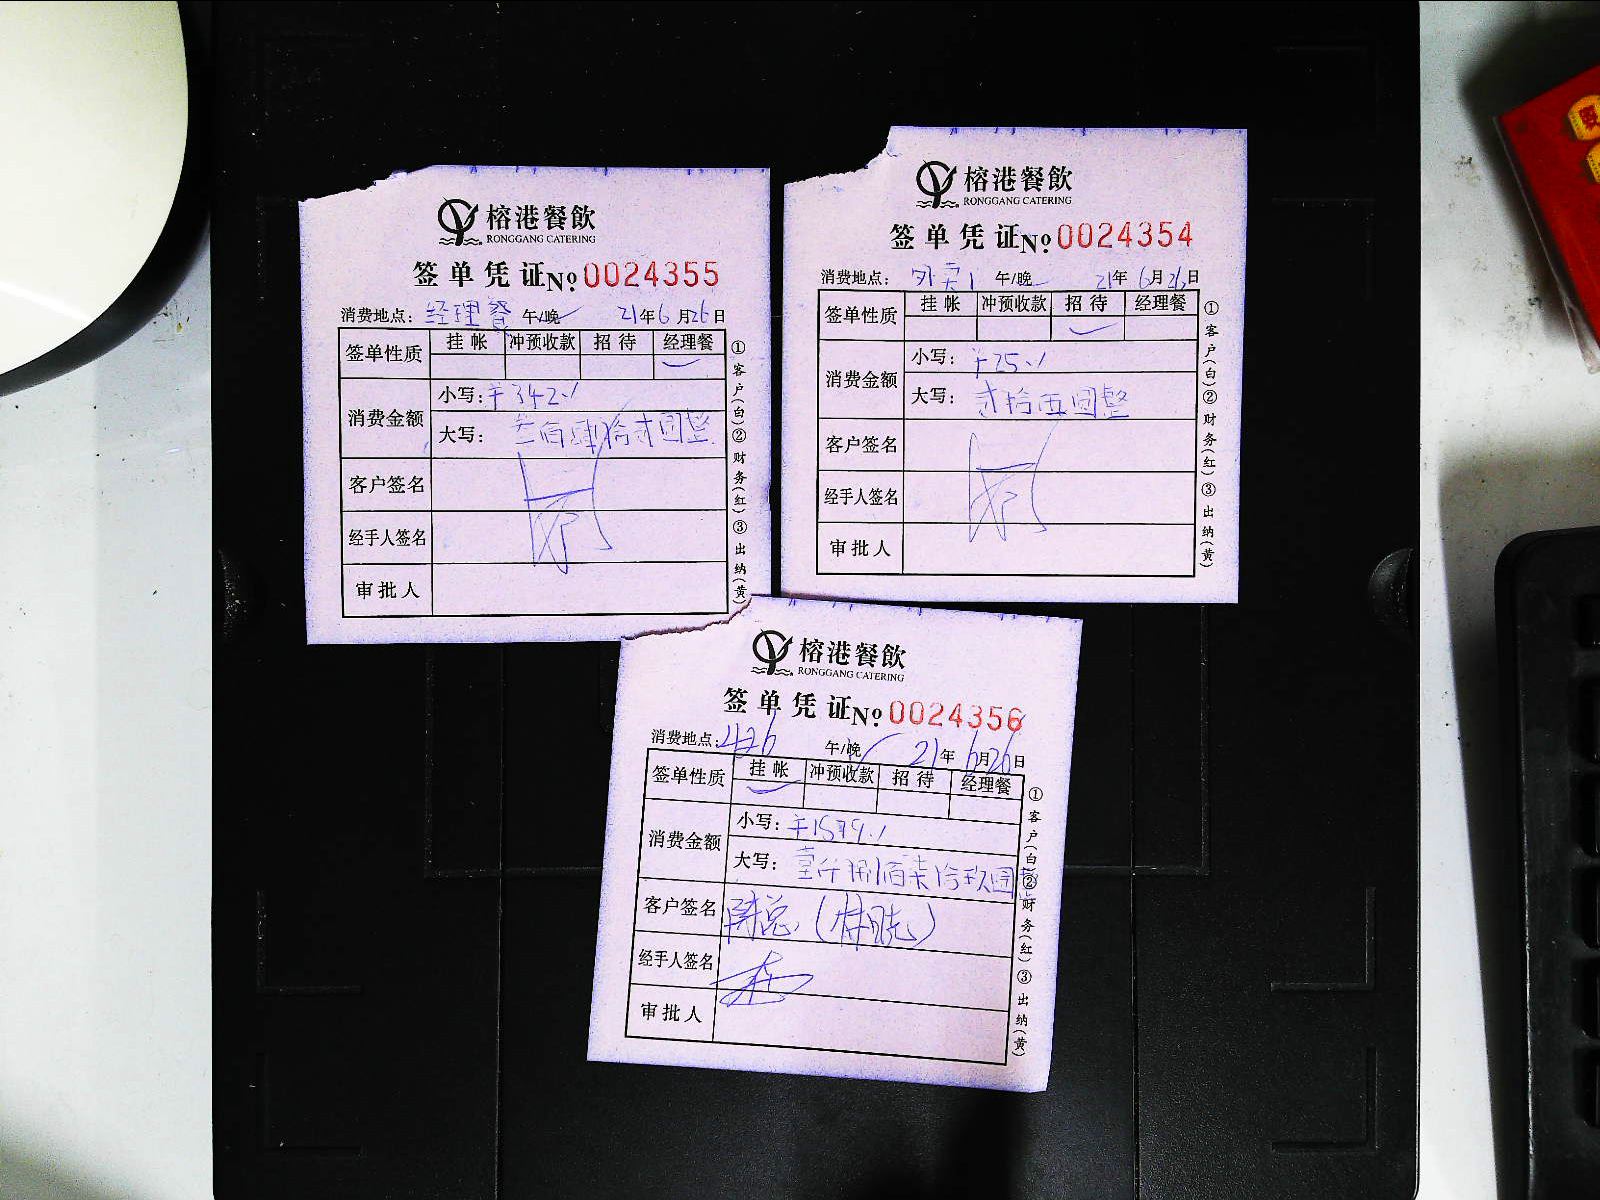 榕港餐飲
RONGGANG CATERING
签单凭证 No 0024355
消费地点：经理餐 午/晚 21年6月26日
签单性质 挂帐 冲预收款 招待 经理餐
消费金额 小写：¥342.
大写：叁佰肆拾贰圆整
客户签名
经手人签名
审批人
①客户(白)②财务(红)③出纳(黄)
榕港餐飲
RONGGANG CATERING
签单凭证 No 0024354
消费地点：外卖1 午/晚 21年6月26日
签单性质 挂帐 冲预收款 招待 经理餐
消费金额 小写：¥25.
大写：贰拾伍圆整
客户签名
经手人签名
审批人
①客户(白)②财务(红)③出纳(黄)
榕港餐飲
RONGGANG CATERING
签单凭证 No 0024356
消费地点： 午/晚 21年6月26日
签单性质 挂帐 冲预收款 招待 经理餐
消费金额 小写：
大写：壹仟捌佰柒拾玖圆
客户签名 陈总
经手人签名
审批人
①客户(白)②财务(红)③出纳(黄)